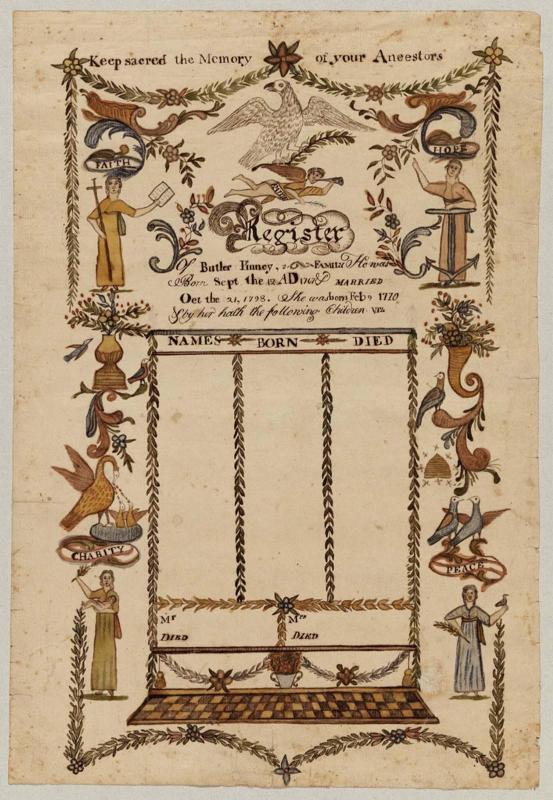 Keep sacred the Memory of your Ancestors
FAITH
HOPE
Register
Of Butler Finney, & FAMILY He was
Born Sept the AD & MARRIED
Oct the 21, 1798. She was born Feb 9 1770
& by her hath the following Children viz
NAMES BORN DIED
CHARITY
PEACE
Mr Mrs
DIED DIED